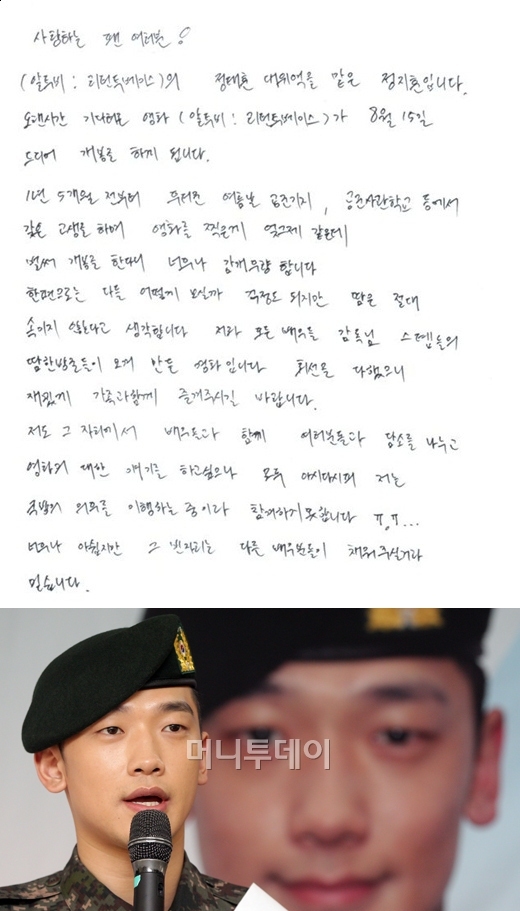 사랑하는 팬 여러분!
(알투비 : 리턴투베이스)의 정태훈 대위역을 맡은 정지훈입니다.
오랜시간 기다려온 영화 (알투비 : 리턴투베이스)가 8월 15일
드디어 개봉을 하게 됩니다.
1년 5개월 전부터 무더운 여름날 공군기지, 공군사관학교 등에서
갖은 고생을 하며 영화를 찍은게 엊그제 같은데
벌써 개봉을 한다니 너무나 감개무량 합니다
한편으로는 다들 어떻게 보실까 걱정도 되지만 땀은 절대
속이지 않는다고 생각합니다 저와 모든 배우들 감독님 스텝들의
땀한방울들이 모여 만든 영화입니다 최선을 다했으니
재밌게 가족과함께 즐겨주시길 바랍니다.
저도 그 자리에서 배우들과 함께 여러분들과 담소를 나누고
영화에 대한 얘기를 하고싶으나 모두 아시다시피 저는
국방의 의무를 이행하는 중이라 함께하지 못합니다 ㅠ,ㅠ...
너무나 아쉽지만 그 빈자리는 다른 배우분들이 채워주실거라
믿습니다.
머니투데이